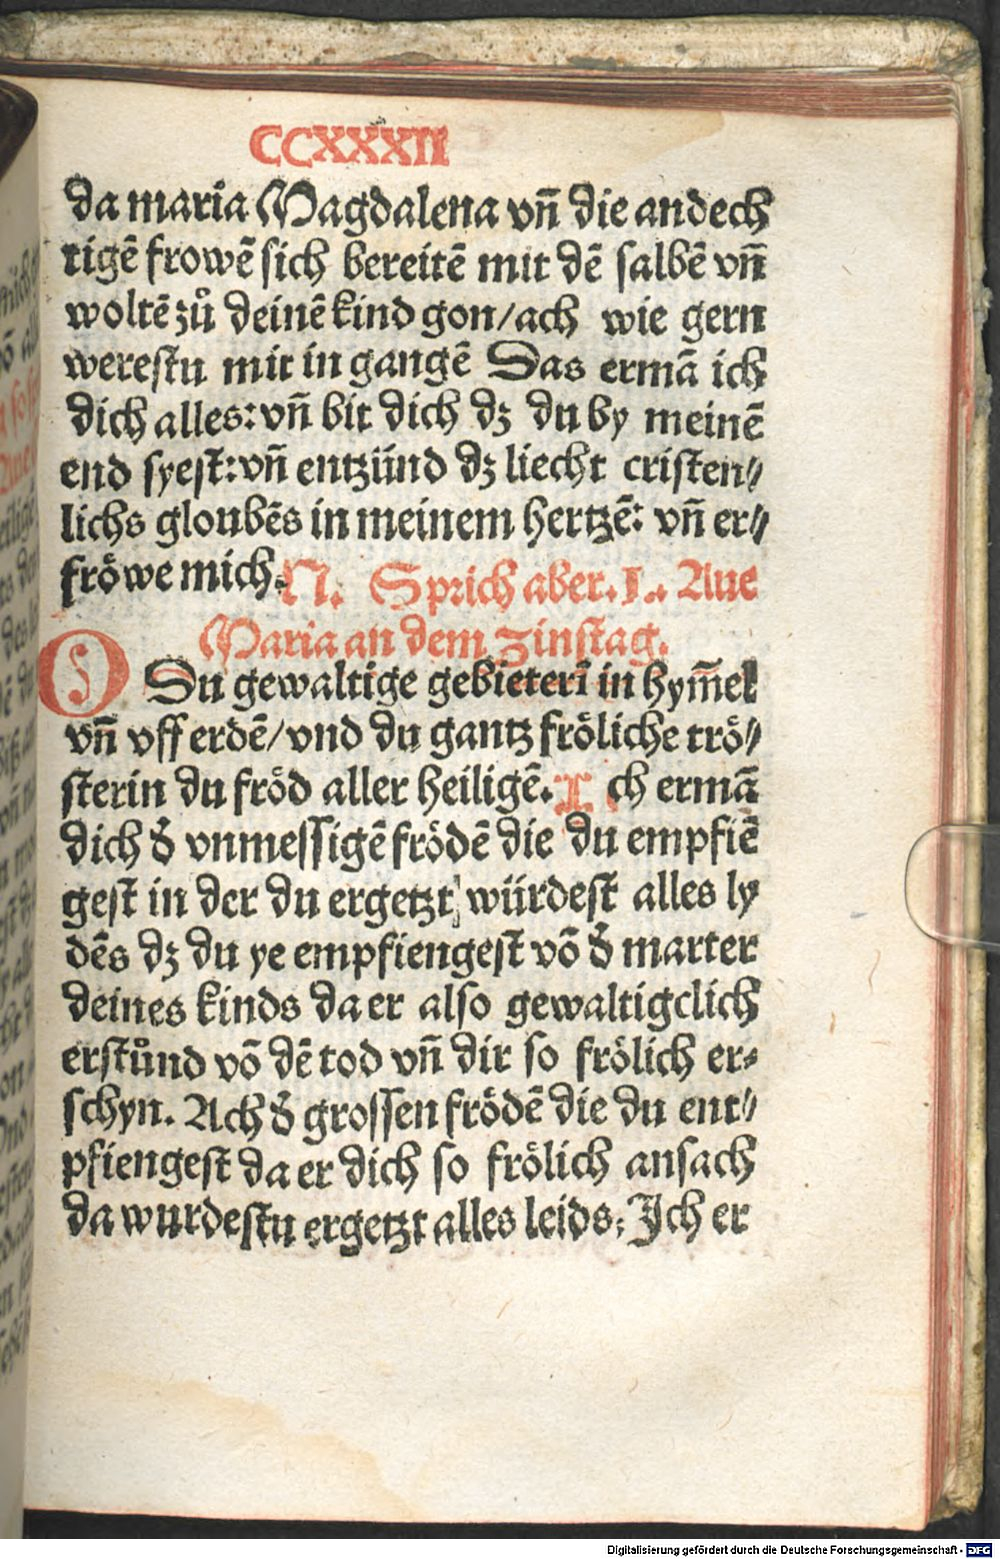 CCXXXII
da maria Magdalena vn̄ die andech
tigē frowē sich bereitē mit dē salbē vn̄
woltē zů deinē kind gon/ach wie gern
werestu mit in gangē Das ermā ich
dich alles: vn̄ bit dich dz du by meinē
end syest: vn̄ entzünd dz liecht cristen//
lichs gloubēs in meinem hertzē: vn̄ er//
fröwe mich. N. Sprich aber. L. Aue
Maria an dem zinstag.
O Du gewaltige gebieterī in hym̄el
vn̄ vff erdē/vnd du gantz fröliche trö//
sterin du fröd aller heiligē. Ich ermā
dich d̄ vnmessigē frödē die du empfiē
gest in der du ergetzt würdest alles ly
dēs dz du ye empfiengest vō d̄ marter
deines kinds da er also gewaltigclich
erstůnd vō dē tod vn̄ dir so frölich er-
schyn. Ach d̄ grossen frödē die du ent//
pfiengest da er dich so frölich ansach
da wurdestu ergetzt alles leids: Ich er
Digitalisierung gefördert durch die Deutsche Forschungsgemeinschaft - DFG